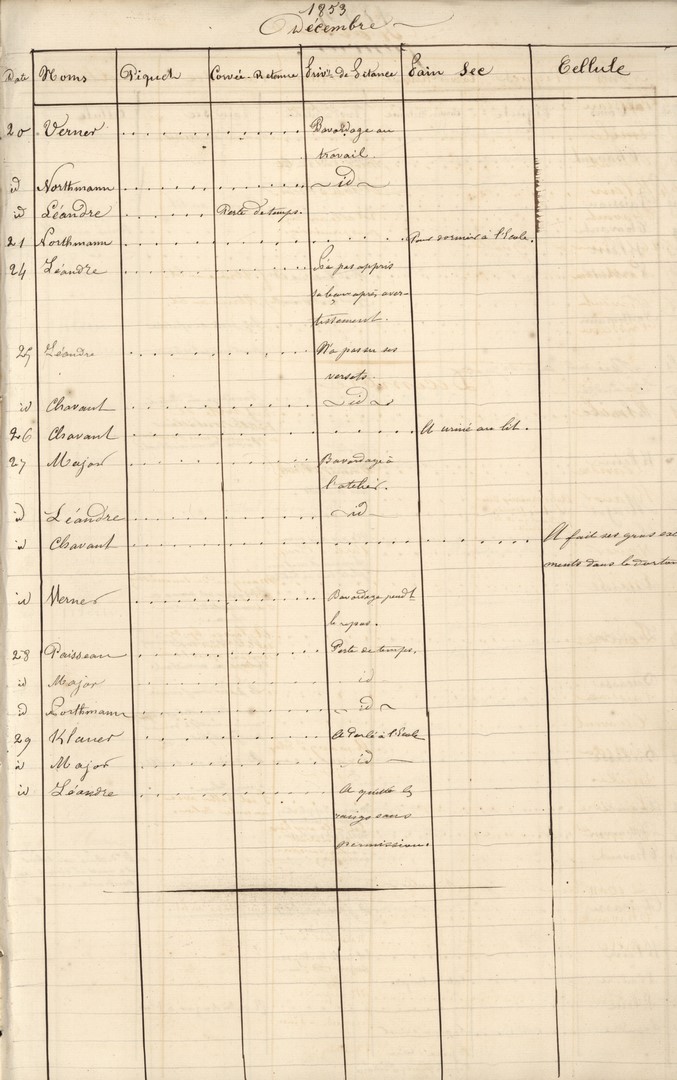 1853
Décembre
Date Noms Piquet Corvée-Retenue Priv.on de Pitance Pain Sec Cellule
20 Verner Bavardage au
travail
id Northmann id
id Léandre Perte de temps.
21 Northmann Pour dormir à l'Ecole.
24 Léandre N'a pas appris
sa leçon après aver-
tissement.
25 Léandre N'a pas su ses
versets
id Chavant id
26 Chavant A uriné au lit.
27 Major Bavardage à
l'atelier.
id Léandre id
id Chavant A fait ses gros excré
ments dans le dortoir
id Verner Bavardage pendt
le repas.
28 Paisseau Perte de temps.
id Major id
id Northmann id
29 Klauer A Parlé à l'Ecole
id Major id
id Léandre A quitté les
rangs sans
permission.